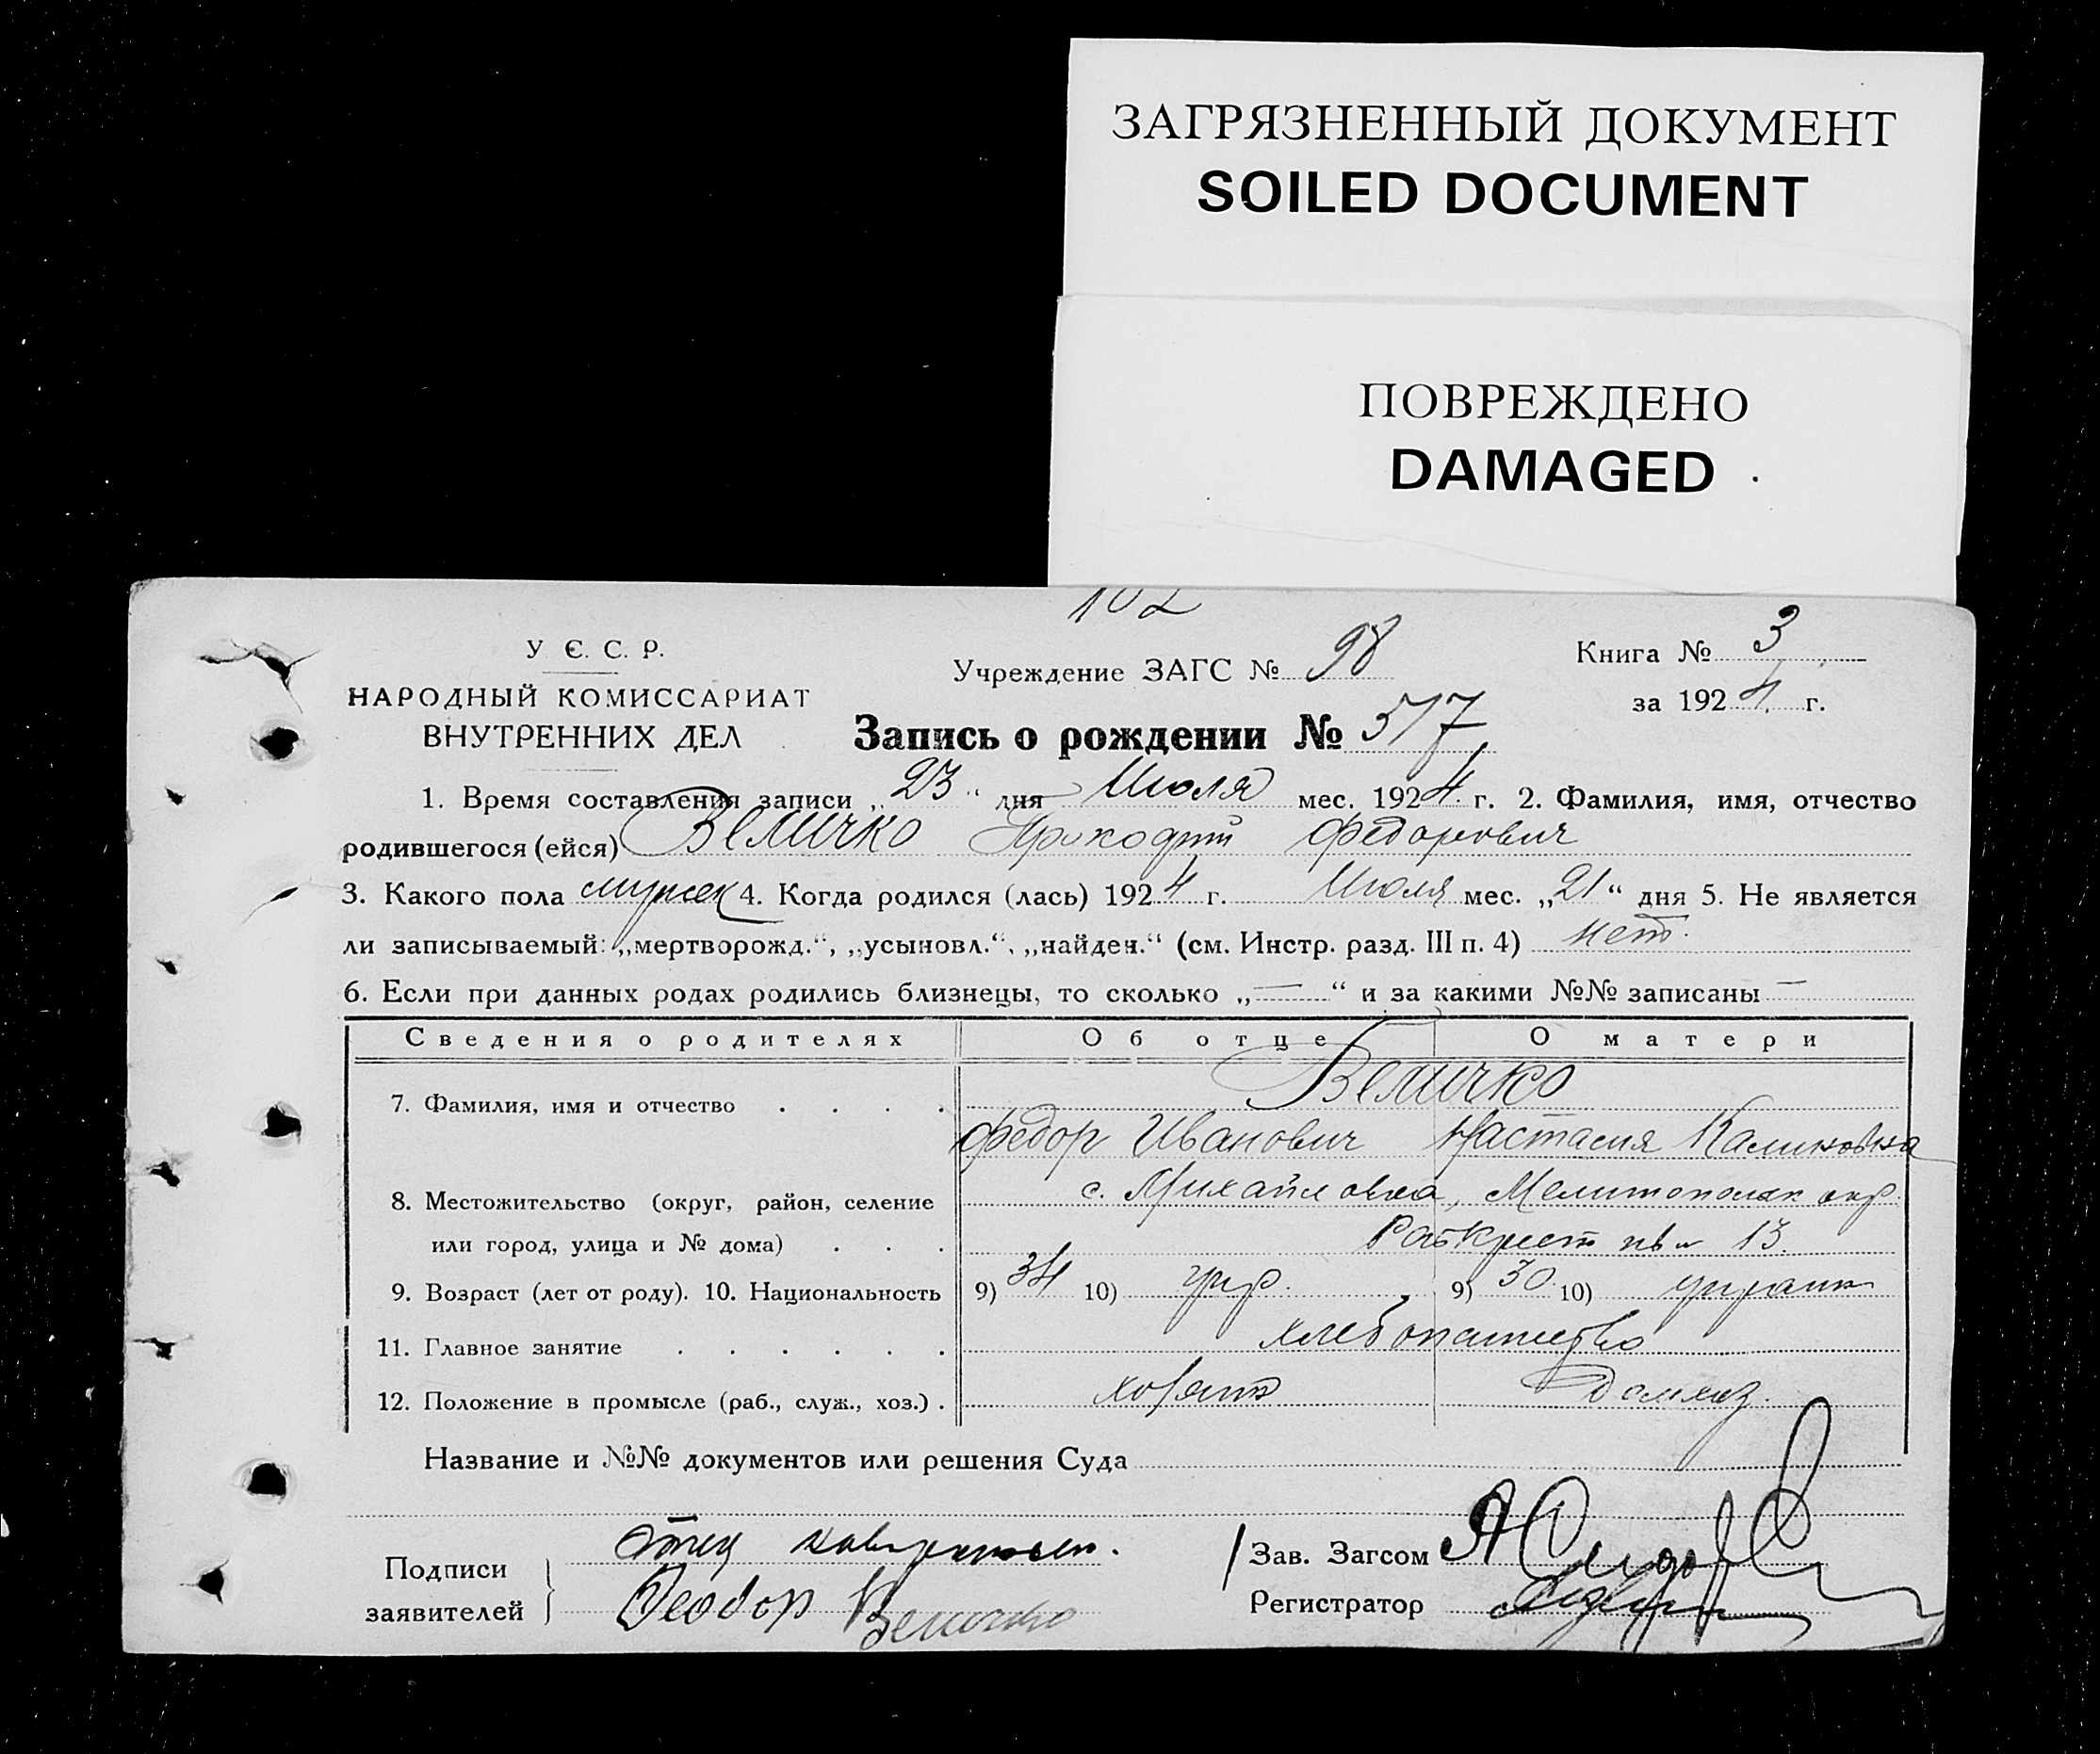 ЗАГРЯЗНЕННЫЙ ДОКУМЕНТ
SOILED DOCUMENT
ПОВРЕЖДЕНО
DAMAGED
102
У Є. С. Р.
НАРОДНЫЙ КОМИССАРИАТ
ВНУТРЕННИХ ДЕЛ
Учреждение ЗАГС № 98
Книга № 3
за 1924 г.
Запись о рождении № 517
1. Время составления записи „23“ дня Июля мес. 1924 г. 2. Фамилия, имя, отчество
родившегося (ейся) Величко Федорович
3. Какого пола мужск 4. Когда родился (лась) 1924 г. Июля мес. „21“ дня 5. Не является
ли записываемый: „мертворожд.“, „усыновл.“, „найден.“ (см. Инстр. разд. III п. 4) нет.
6. Если при данных родах родились близнецы, то сколько „—“ и за какими №№ записаны —
Сведения о родителях Об отце О матери
7. Фамилия, имя и отчество . . . . Величко
Федор Иванович Настасия
8. Местожительство (округ, район, селение с. Михайловка, Мелитопольск окр.
или город, улица и № дома) . . . 13.
9. Возраст (лет от роду). 10. Национальность 9) 34 10) укр. 9) 30 10) украин
11. Главное занятие . . . . . . хлебопашество
12. Положение в промысле (раб., служ., хоз.) . хозяин домхоз.
Название и №№ документов или решения Суда
Подписи заявителей
отец
Феодор Величко
Зав. Загсом
Регистратор